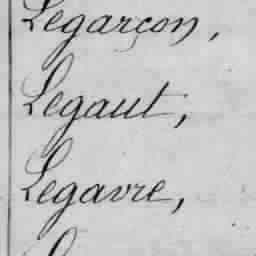 Legarçon,
Legaut,
Legavre,